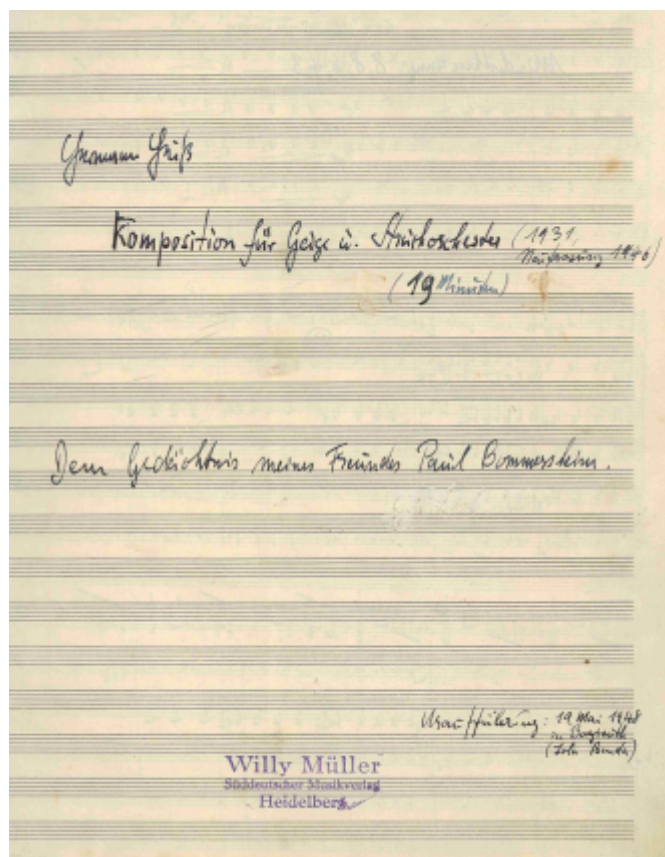 Hermann Heiß
Komposition für Geige u. Streichorchester (1931,
Neufassung 1946)
(19 Minuten)
Dem Gedächtnis meines Freundes Paul Bommersheim.
Uraufführung: 19 Mai 1948
in Bayreuth
Willy Müller
Süddeutscher Musikverlag
Heidelberg